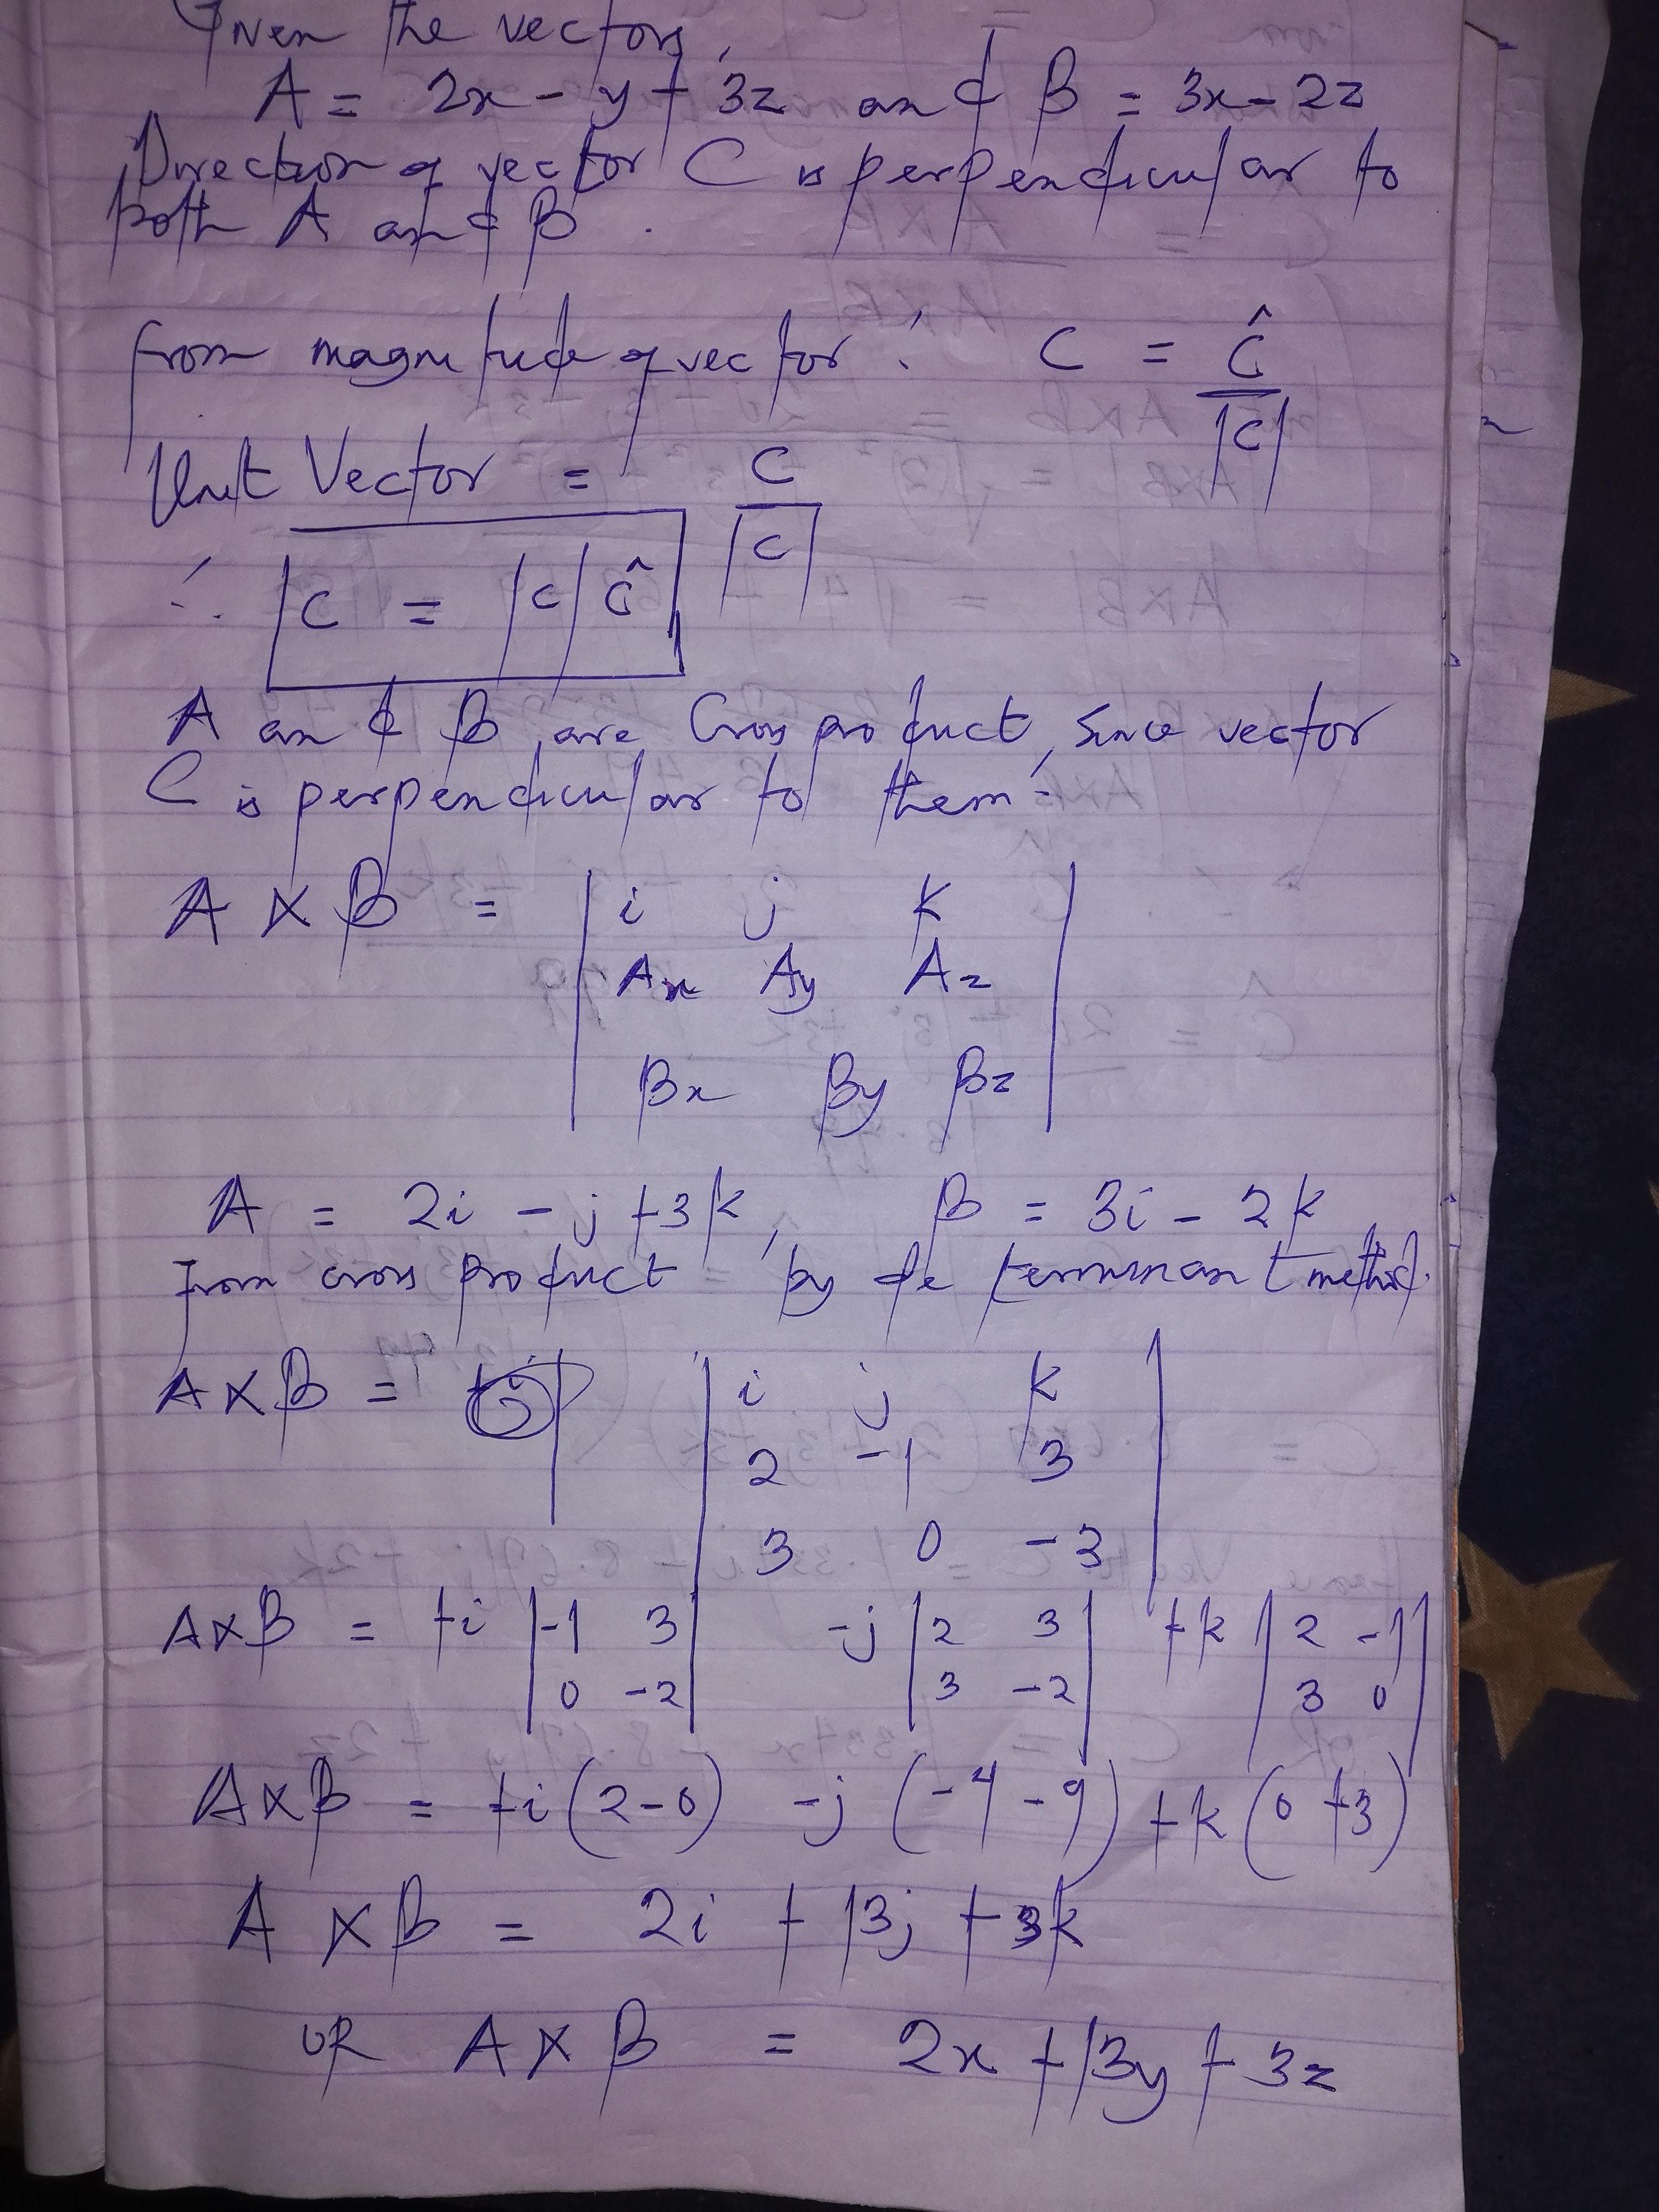 Given the vectors,
A = 2x - y + 3z and B = 3x - 2z
Direction of vector C is perpendicular to
both A and B.
from magnitude of vector: C = Ĉ / |C|
Unit Vector = C / |C|
∴ C = |C| Ĉ
A and B are Cross product, Since vector
C is perpendicular to them:
A X B = | i j k |
| Ax Ay Az |
| Bx By Bz |
A = 2i - j + 3k, B = 3i - 2k
From cross product by determinant method.
A X B = | i j k |
| 2 -1 3 |
| 3 0 -2 |
A X B = +i |-1 3| -j |2 3| +k |2 -1|
|0 -2| |3 -2| |3 0|
A X B = +i(2-0) -j(-4-9) +k(0+3)
A X B = 2i + 13j + 3k
OR A X B = 2x + 13y + 3z